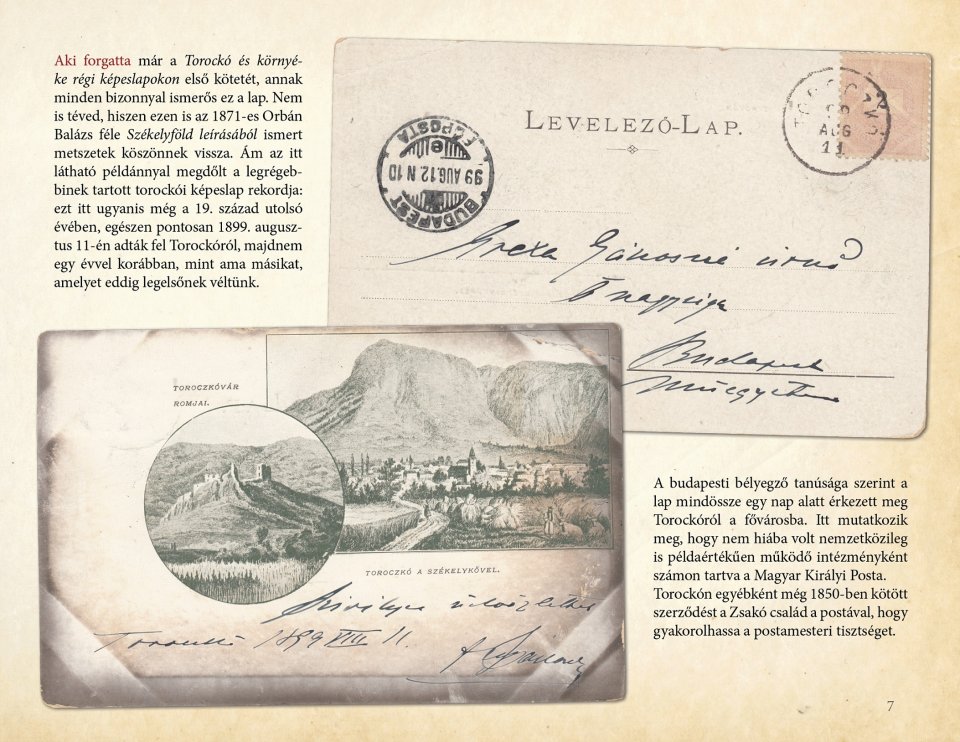 Aki forgatta már a Torockó és környé-
ke régi képeslapokon első kötetét, annak
minden bizonnyal ismerős ez a lap. Nem
is téved, hiszen ezen is az 1871-es Orbán
Balázs féle Székelyföld leírásából ismert
metszetek köszönnek vissza. Ám az itt
látható példánnyal megdőlt a legrégeb-
binek tartott torockói képeslap rekordja:
ezt itt ugyanis még a 19. század utolsó
évében, egészen pontosan 1899. augusz-
tus 11-én adták fel Torockóról, majdnem
egy évvel korábban, mint ama másikat,
amelyet eddig legelsőnek véltünk.
LEVELEZŐ-LAP.
TOROCZKÓ
99
AUG
11
FŐPOSTA
99 AUG.12. N 10
BUDAPEST
Jánosné úrnő
Ő nagysága
Budapest
TOROCZKÓVÁR
ROMJAI.
TOROCZKÓ A SZÉKELYKŐVEL.
Szívélyes üdvözlettel
Torockó 1899 VIII 11.
A budapesti bélyegző tanúsága szerint a
lap mindössze egy nap alatt érkezett meg
Torockóról a fővárosba. Itt mutatkozik
meg, hogy nem hiába volt nemzetközileg
is példaértékűen működő intézményként
számon tartva a Magyar Királyi Posta.
Torockón egyébként még 1850-ben kötött
szerződést a Zsakó család a postával, hogy
gyakorolhassa a postamesteri tisztséget.
7